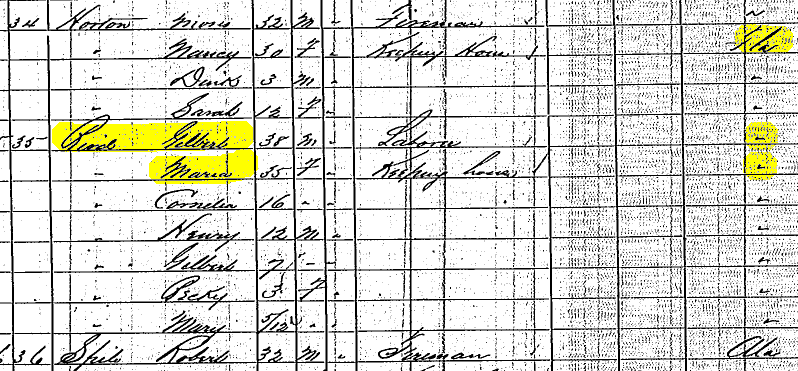 34 Horton Moris 32 M " Fireman
" Nancy 30 F " Keeping House Fla
" 3 M " "
" Sarah 12 F " "
35 Gilbert 38 M " Laborer "
" Maria 35 F " Keeping house "
" Cornelia 16 " " "
" Henry 12 M " "
" Gilbert 7 " " "
" Becky 3 F " "
" Mary 5/12 " " "
36 Robert 32 M " Fireman Ala